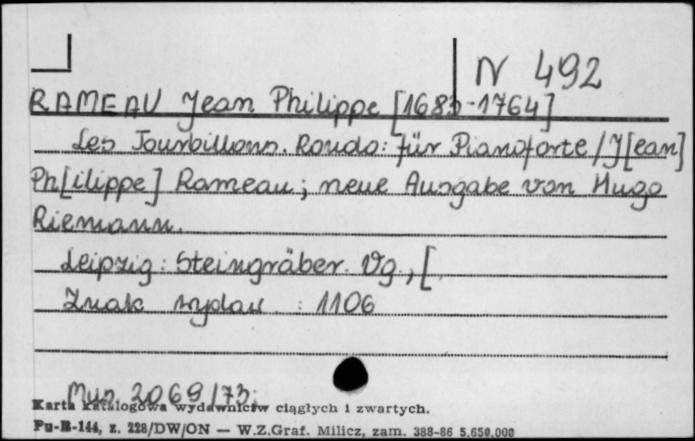 N 492
RAMEAU Jean Philippe [1683-1764]
Les Tourbillons. Rondo: für Pianoforte / J[ean]
Ph[ilippe] Rameau; neue Ausgabe von Hugo
Riemann.
Leipzig: Steingräber. Vg., [
Znak wydaw. : 1106
Mus. 2069/73
Karta katalogowa wydawnictw ciągłych i zwartych.
Pu-B-144, z. 228/DW/ON — W.Z.Graf. Milicz, zam. 388-86 5.650.000